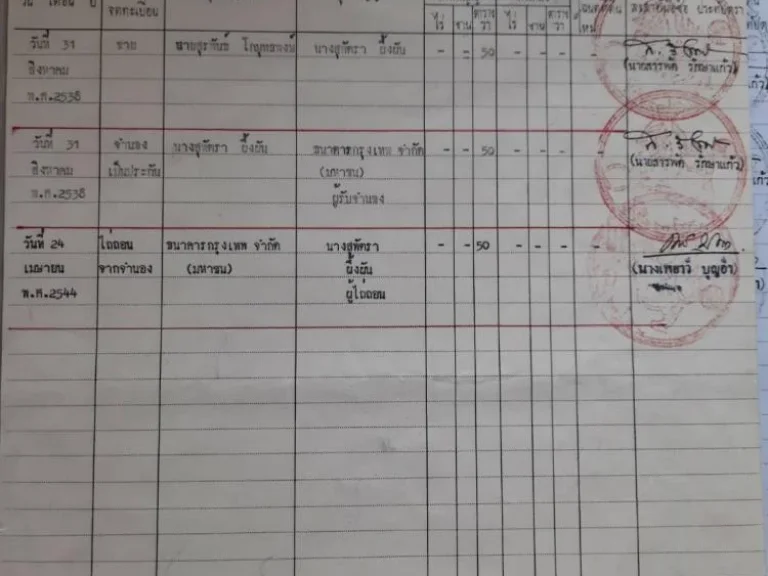 วัน เดือน ปี จดทะเบียน
ไร่ งาน ตาราง วา ไร่ งาน ตาราง วา
วันที่ 31 ขาย นางสุภัตรา ยิ้งยัน - - 50 - - - - -
สิงหาคม (นายสารพัด รักษาแก้ว)
พ.ศ.2538
วันที่ 31 จำนอง นางสุภัตรา ยิ้งยัน ธนาคารกรุงเทพ จำกัด - - 50 - - - - -
สิงหาคม เป็นประกัน (มหาชน) (นายสารพัด รักษาแก้ว)
พ.ศ.2538 ผู้รับจำนอง
วันที่ 24 ไถ่ถอน ธนาคารกรุงเทพ จำกัด นางสุภัตรา - - 50 - - - - -
เมษายน จากจำนอง (มหาชน) ยิ้งยัน
พ.ศ.2544 ผู้ไถ่ถอน